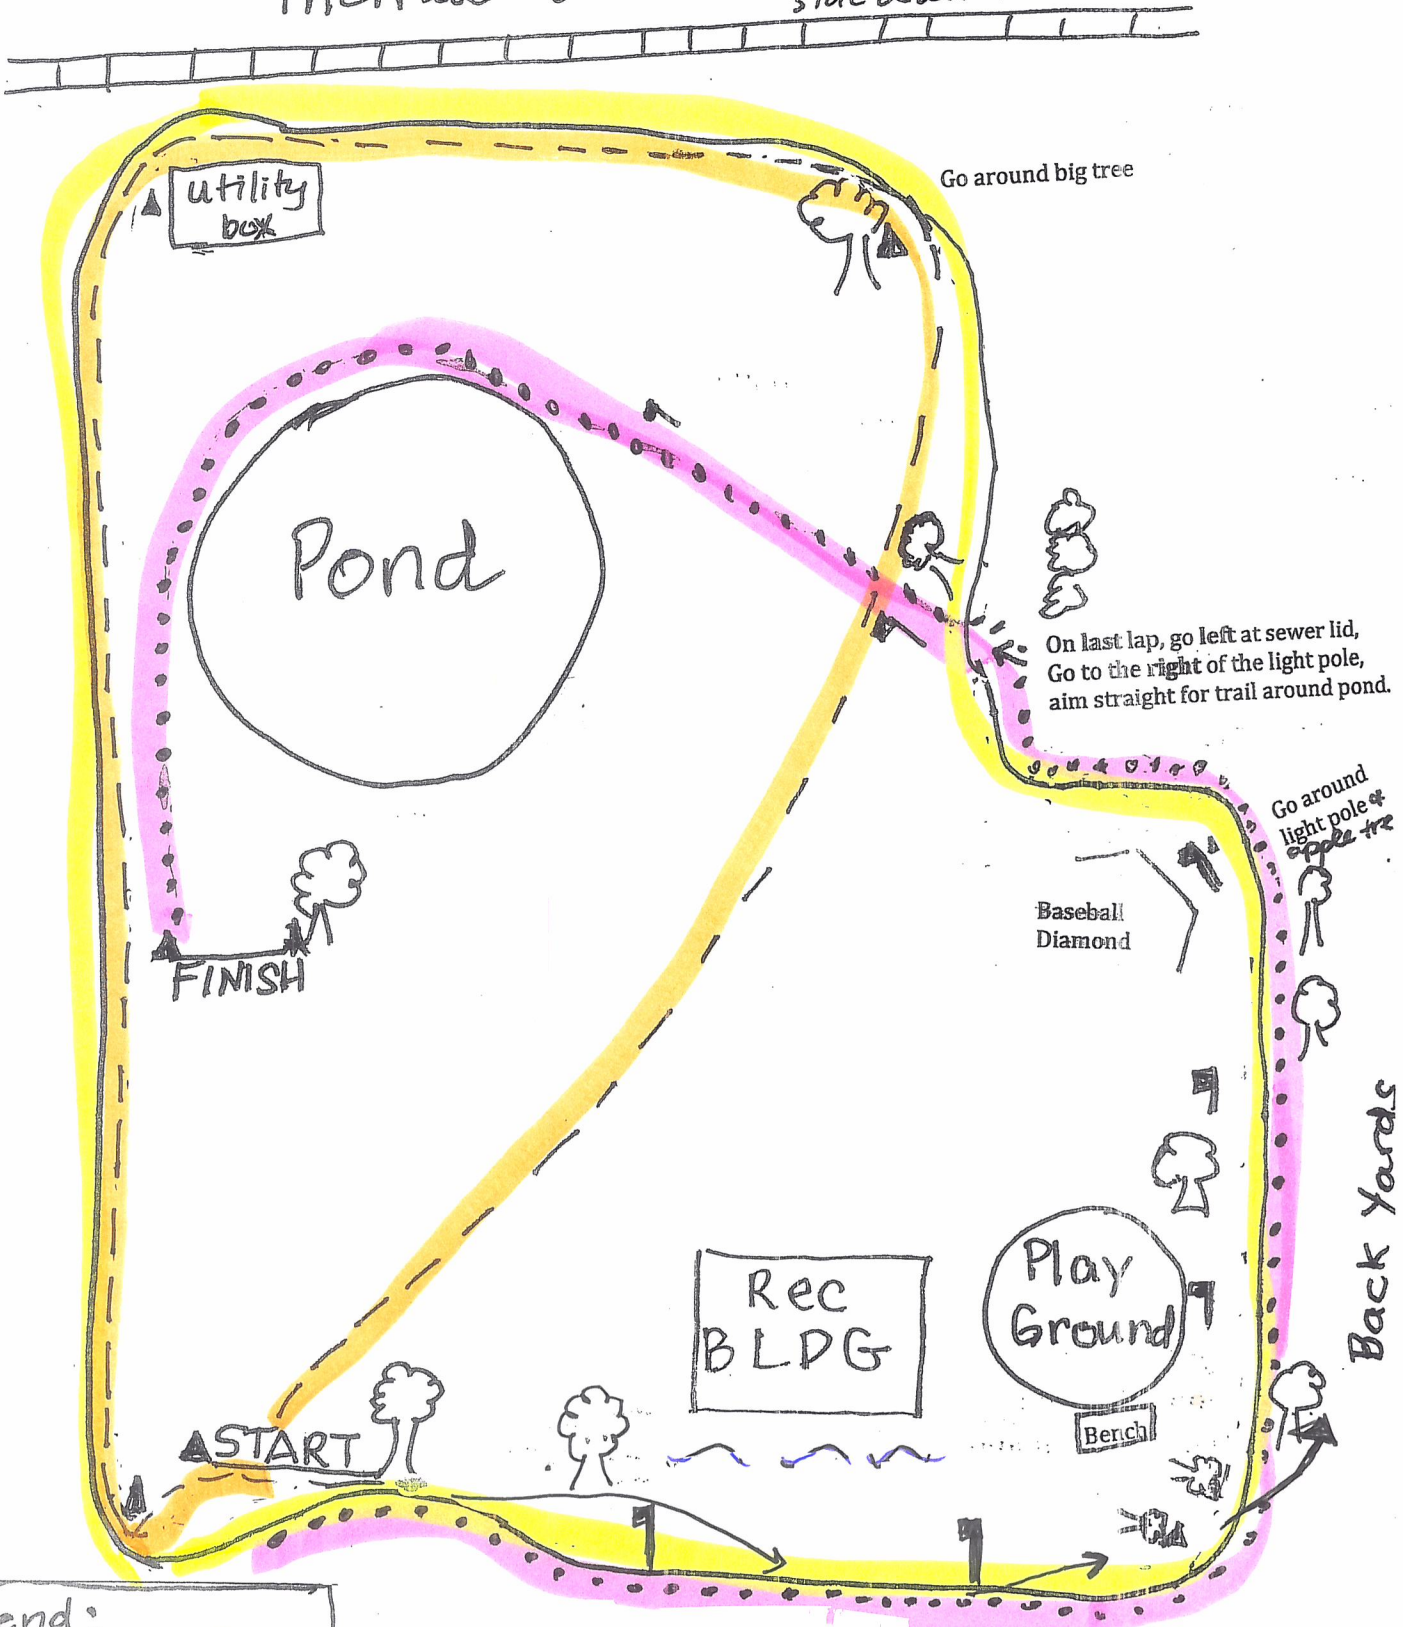 utility
box
Go around big tree
Pond
On last lap, go left at sewer lid,
Go to the right of the light pole,
aim straight for trail around pond.
Go around
light pole &
apple tre
Baseball
Diamond
FINISH
Back Yards
Play
Ground
Rec
BLDG
Bench
START
end: